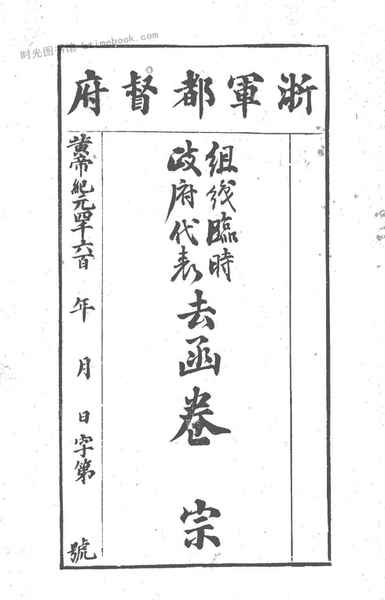 时光图书馆 btimebook.com
浙軍都督府
組織臨時
政府代表
去函卷宗
黃帝紀元四千六百 年 月 日字第 號